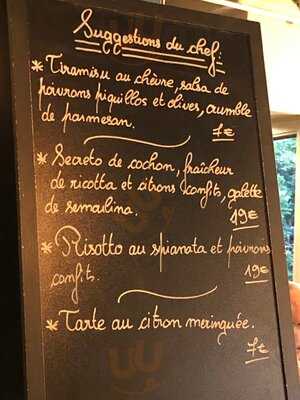 Suggestions du chef:
* Tiramisu au chèvre, salsa de
poivrons piquillos et olives, crumble
de parmesan.
7€
* Secreto de cochon, fraîcheur
de ricotta et citrons confits, galette
de semoulina.
19€
* Risotto au spianata et poivrons
confits.
19€
* Tarte au citron meringuée.
7€